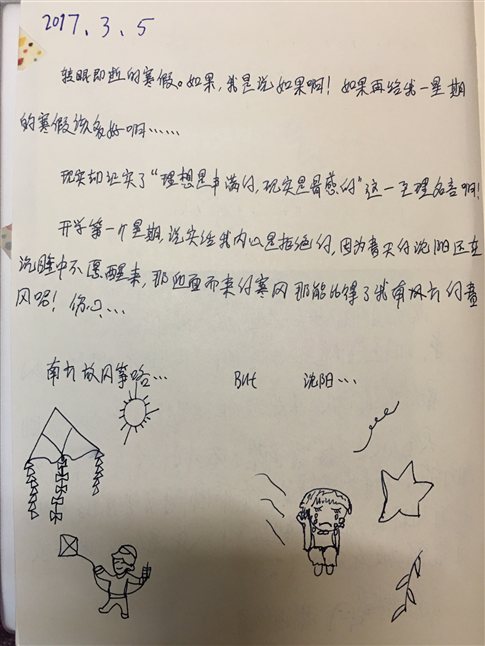 2017.3.5
转眼即逝的寒假。如果,我是说如果啊!如果再给我一星期
的寒假该多好啊……
现实却证实了“理想是丰满的,现实是骨感的”这一至理名言啊!
开学第一个星期,说实话我内心是拒绝的,因为春天的沈阳还在
沉睡中不愿醒来,那迎面而来的寒风那能比得了我南方的春
风啊!
南方放风筝咯…
But 沈阳…